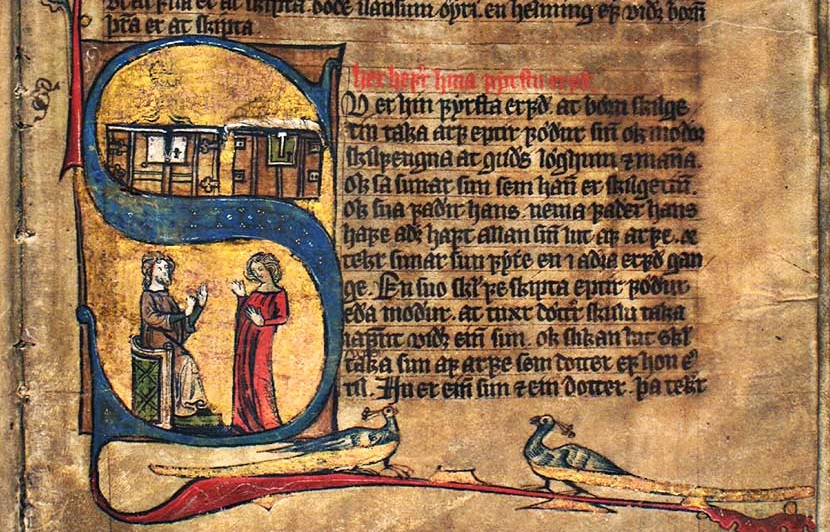 þeta er at skipta
her hefr hina fyrstu erfd.
U er hin fyrsta erfd at born skilge
tin taka arf eptir fodur sin ok modur
skilfengna at guds logum ⁊ mana.
Ok sa sunar sun sem han er skilgetin.
Ok sua fadir hans nema fader hans
hafe adr haft allan sin lut af arfe. ok
tekr sunar sun fyrre en i adra erfd gan
ge. En suo skal fe skipta eptir fodur
eda modur. at tuær dottr skulu taka
iafnt vidr ein sun. ok slikan lut skal
taka sun af arfe sem dotter ef hon er
til. Nu er ein sun ⁊ ein dotter. þa tekr